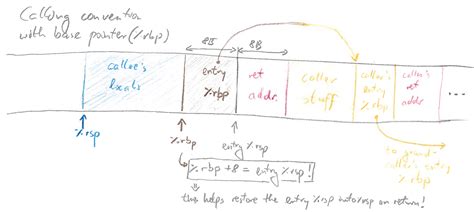 Calling convention
with base pointer (%rbp)
8B
8B
callee's
locals
entry
%rbp
ret
addr.
caller
stuff
caller's
entry
%rbp
caller's
ret
addr.
...
%rsp
%rbp
entry %rsp
to grand-
caller's entry
%rbp
%rbp +8 = entry %rsp !
this helps restore the entry %rsp into %rsp on return!